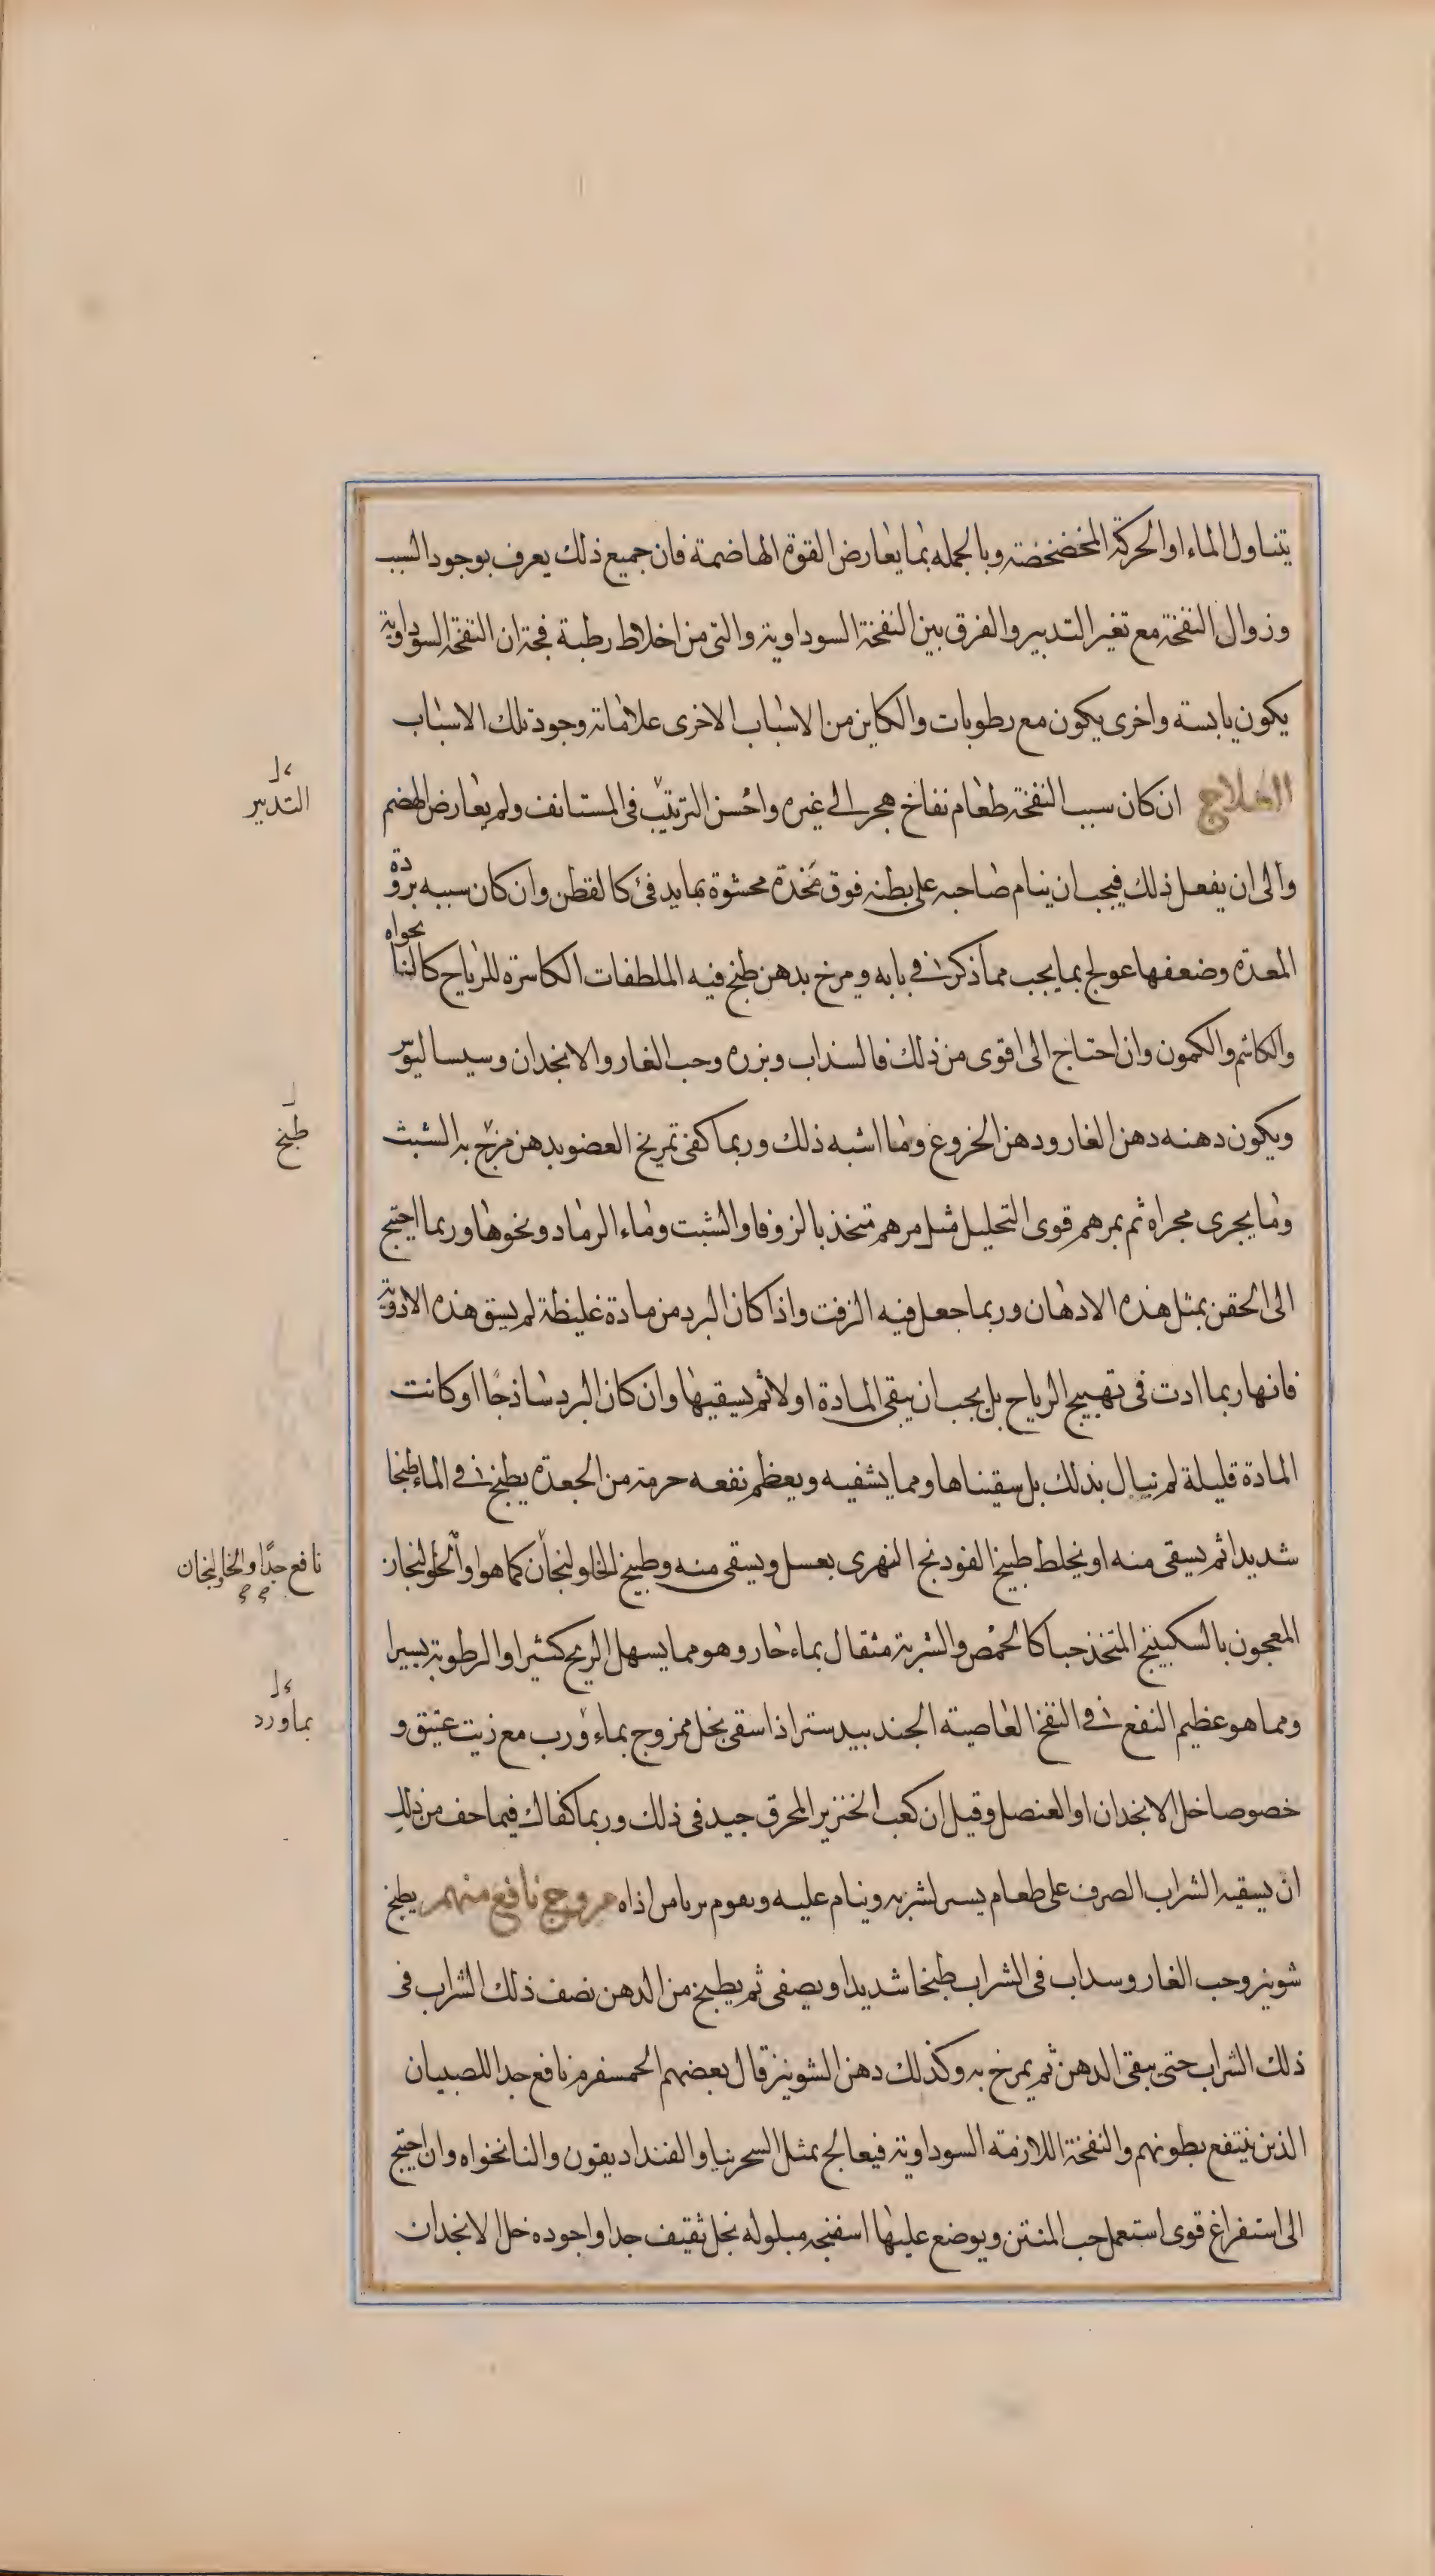 يتناول الماء او الحركة المخضخضة وبالجمله بما يعارض القوة الهاضمة فان جميع ذلك يعرف بوجود السبب
وزوال النفخة مع تغير التدبير والفرق بين النفخة السوداوية والتى من اخلاط رطبة فجة ان النفخة السوداوية
يكون يابسة واخرى يكون مع رطوبات والكاين من الاسباب الاخرى علاماته وجود تلك الاسباب
العلاج ان كان سبب النفخة طعام نفاخ هجر الى غيره واحسن الترتيب فى المستانف ولم يعارض الهضم
ل
التدبير
والى ان يفعل ذلك فيجب ان ينام صاحبه على بطنه فوق مخدة محشوة بما يدفئ كالقطن وان كان سببه برودة
المعدة وضعفها عولج بما يجب مما ذكر فى بابه ومرخ بدهن طبخ فيه الملطفات الكاسرة للرياح كالنانخواه
والكاشم والكمون وان احتاج الى اقوى من ذلك فالسذاب وبزره وحب الغار والانجدان وسيساليوس
ويكون دهنه دهن الغار ودهن الخروع وما اشبه ذلك وربما كفى تمريخ العضو بدهن مزج به الشبث
ل
طبخ
وما يجرى مجراه ثم بمرهم قوى التحليل مثل مرهم متخذ بالزوفا والشبت وماء الرماد ونحوها وربما احتيج
الى الحقن بمثل هذه الادهان وربما جعل فيه الزفت واذا كان البرد من مادة غليظة لم يسق هذه الادوية
فانها ربما ادت فى تهييج الرياح بل يجب ان ينقى المادة اولا ثم يسقيها وان كان البرد ساذجًا او كانت
المادة قليلة لم نبال بذلك بل سقيناها ومما يشفيه ويعظم نفعه حزمة من الجعدة يطبخ فى الماء طبخا
شديدا ثم يسقى منه او يخلط طبيخ الفودنج النهرى بعسل ويسقى منه وطبيخ الخاولنجان كما هو او الخولنجان
نافع جدًا والخاولنجان
المعجون بالسكبينج المتخذ حبا كالحمص والشربة مثقال بماء حار وهو مما يسهل الريح كثيرا والرطوبة يسيرا
ومما هو عظيم النفع فى النفخ العاصية الجندبيدستر اذا سقى بخل ممزوج بماء ورب مع زيت عتيق و
ل
بماورد
خصوصا خل الانجدان او العنصل وقيل ان كعب الخنزير المحرق جيد فى ذلك وربما كفاك فيما خف من ذلك
ان يسقيه الشراب الصرف على طعام يسير لشربه وينام عليه ويقوم بريا من اذاه مروخ نافع منهم يطبخ
شونيز وحب الغار وسداب فى الشراب طبخا شديدا ويصفى ثم يطبخ من الدهن نصف ذلك الشراب فى
ذلك الشراب حتى يبقى الدهن ثم يمرخ به وكذلك دهن الشونيز قال بعضهم الحمسفرم نافع جدا للصبيان
الذين ينتفع بطونهم والنفخة اللازمه السوداوية فيعالج بمثل السجرنيا والفنداديقون والنانخواه وان احتيج
الى استفراغ قوى استعمل حب المنتن ويوضع عليها اسفنجه مبلوله بخل ثقيف جدا واجوده خل الانجدان